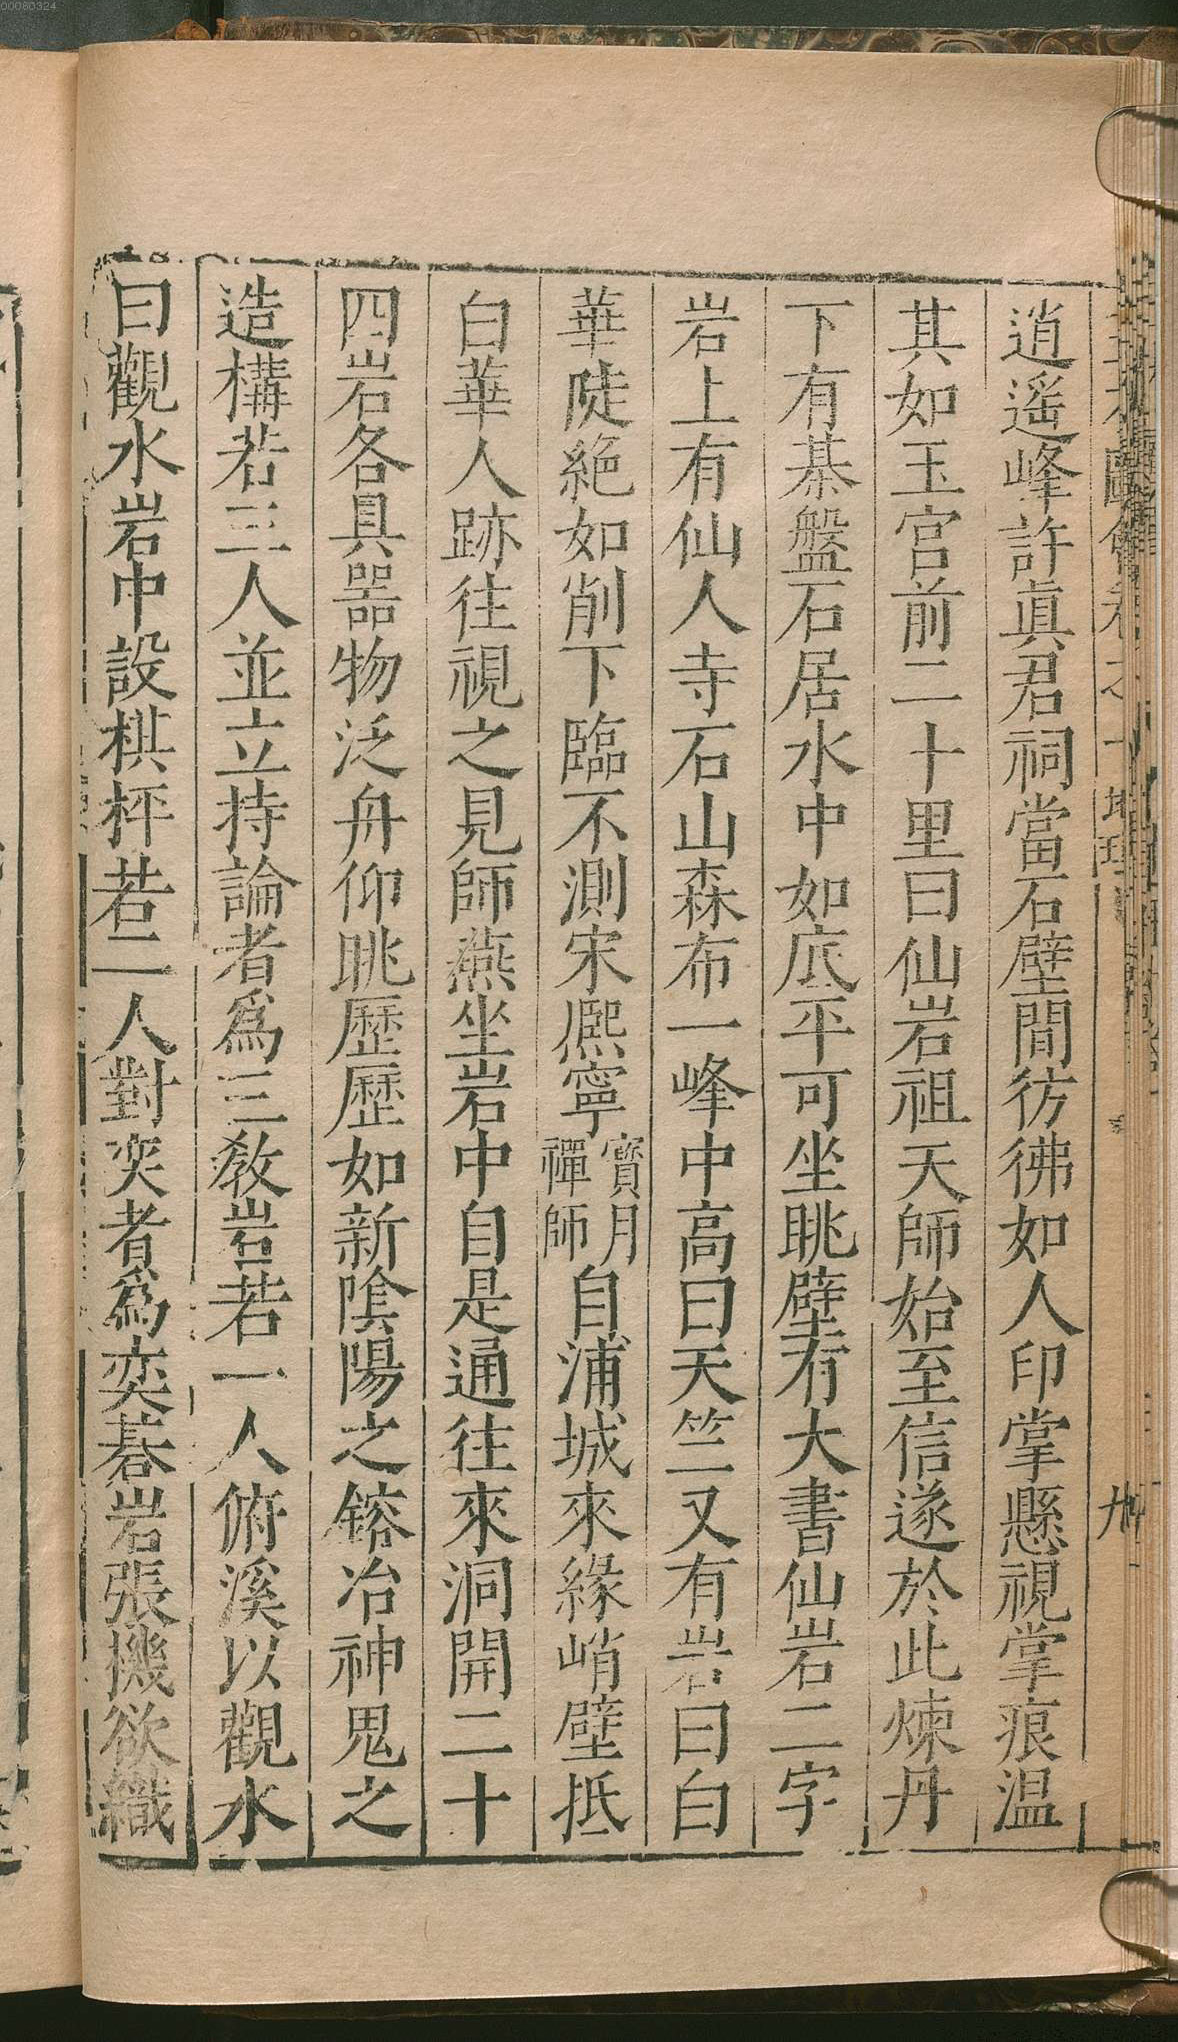 00080324
逍遙峰許眞君祠當石壁間彷彿如人印掌懸視掌痕温
其如玉宫前二十里曰仙岩祖天師始至信遂於此煉丹
下有棊盤石居水中如底平可坐眺壁有大書仙岩二字
岩上有仙人寺石山森布一峰中高曰天竺又有岩曰白
華陡絶如削下臨不測宋熈寧寳月禪師自浦城來緣峭壁抵
白華人跡往視之見師燕坐岩中自是通往來洞開二十
四岩各具器物泛舟仰眺歷歷如新陰陽之鎔冶神鬼之
造構若三人並立持論者爲三教岩若一人俯溪以觀水
曰觀水岩中設棋枰若二人對奕者爲奕碁岩張機欲織